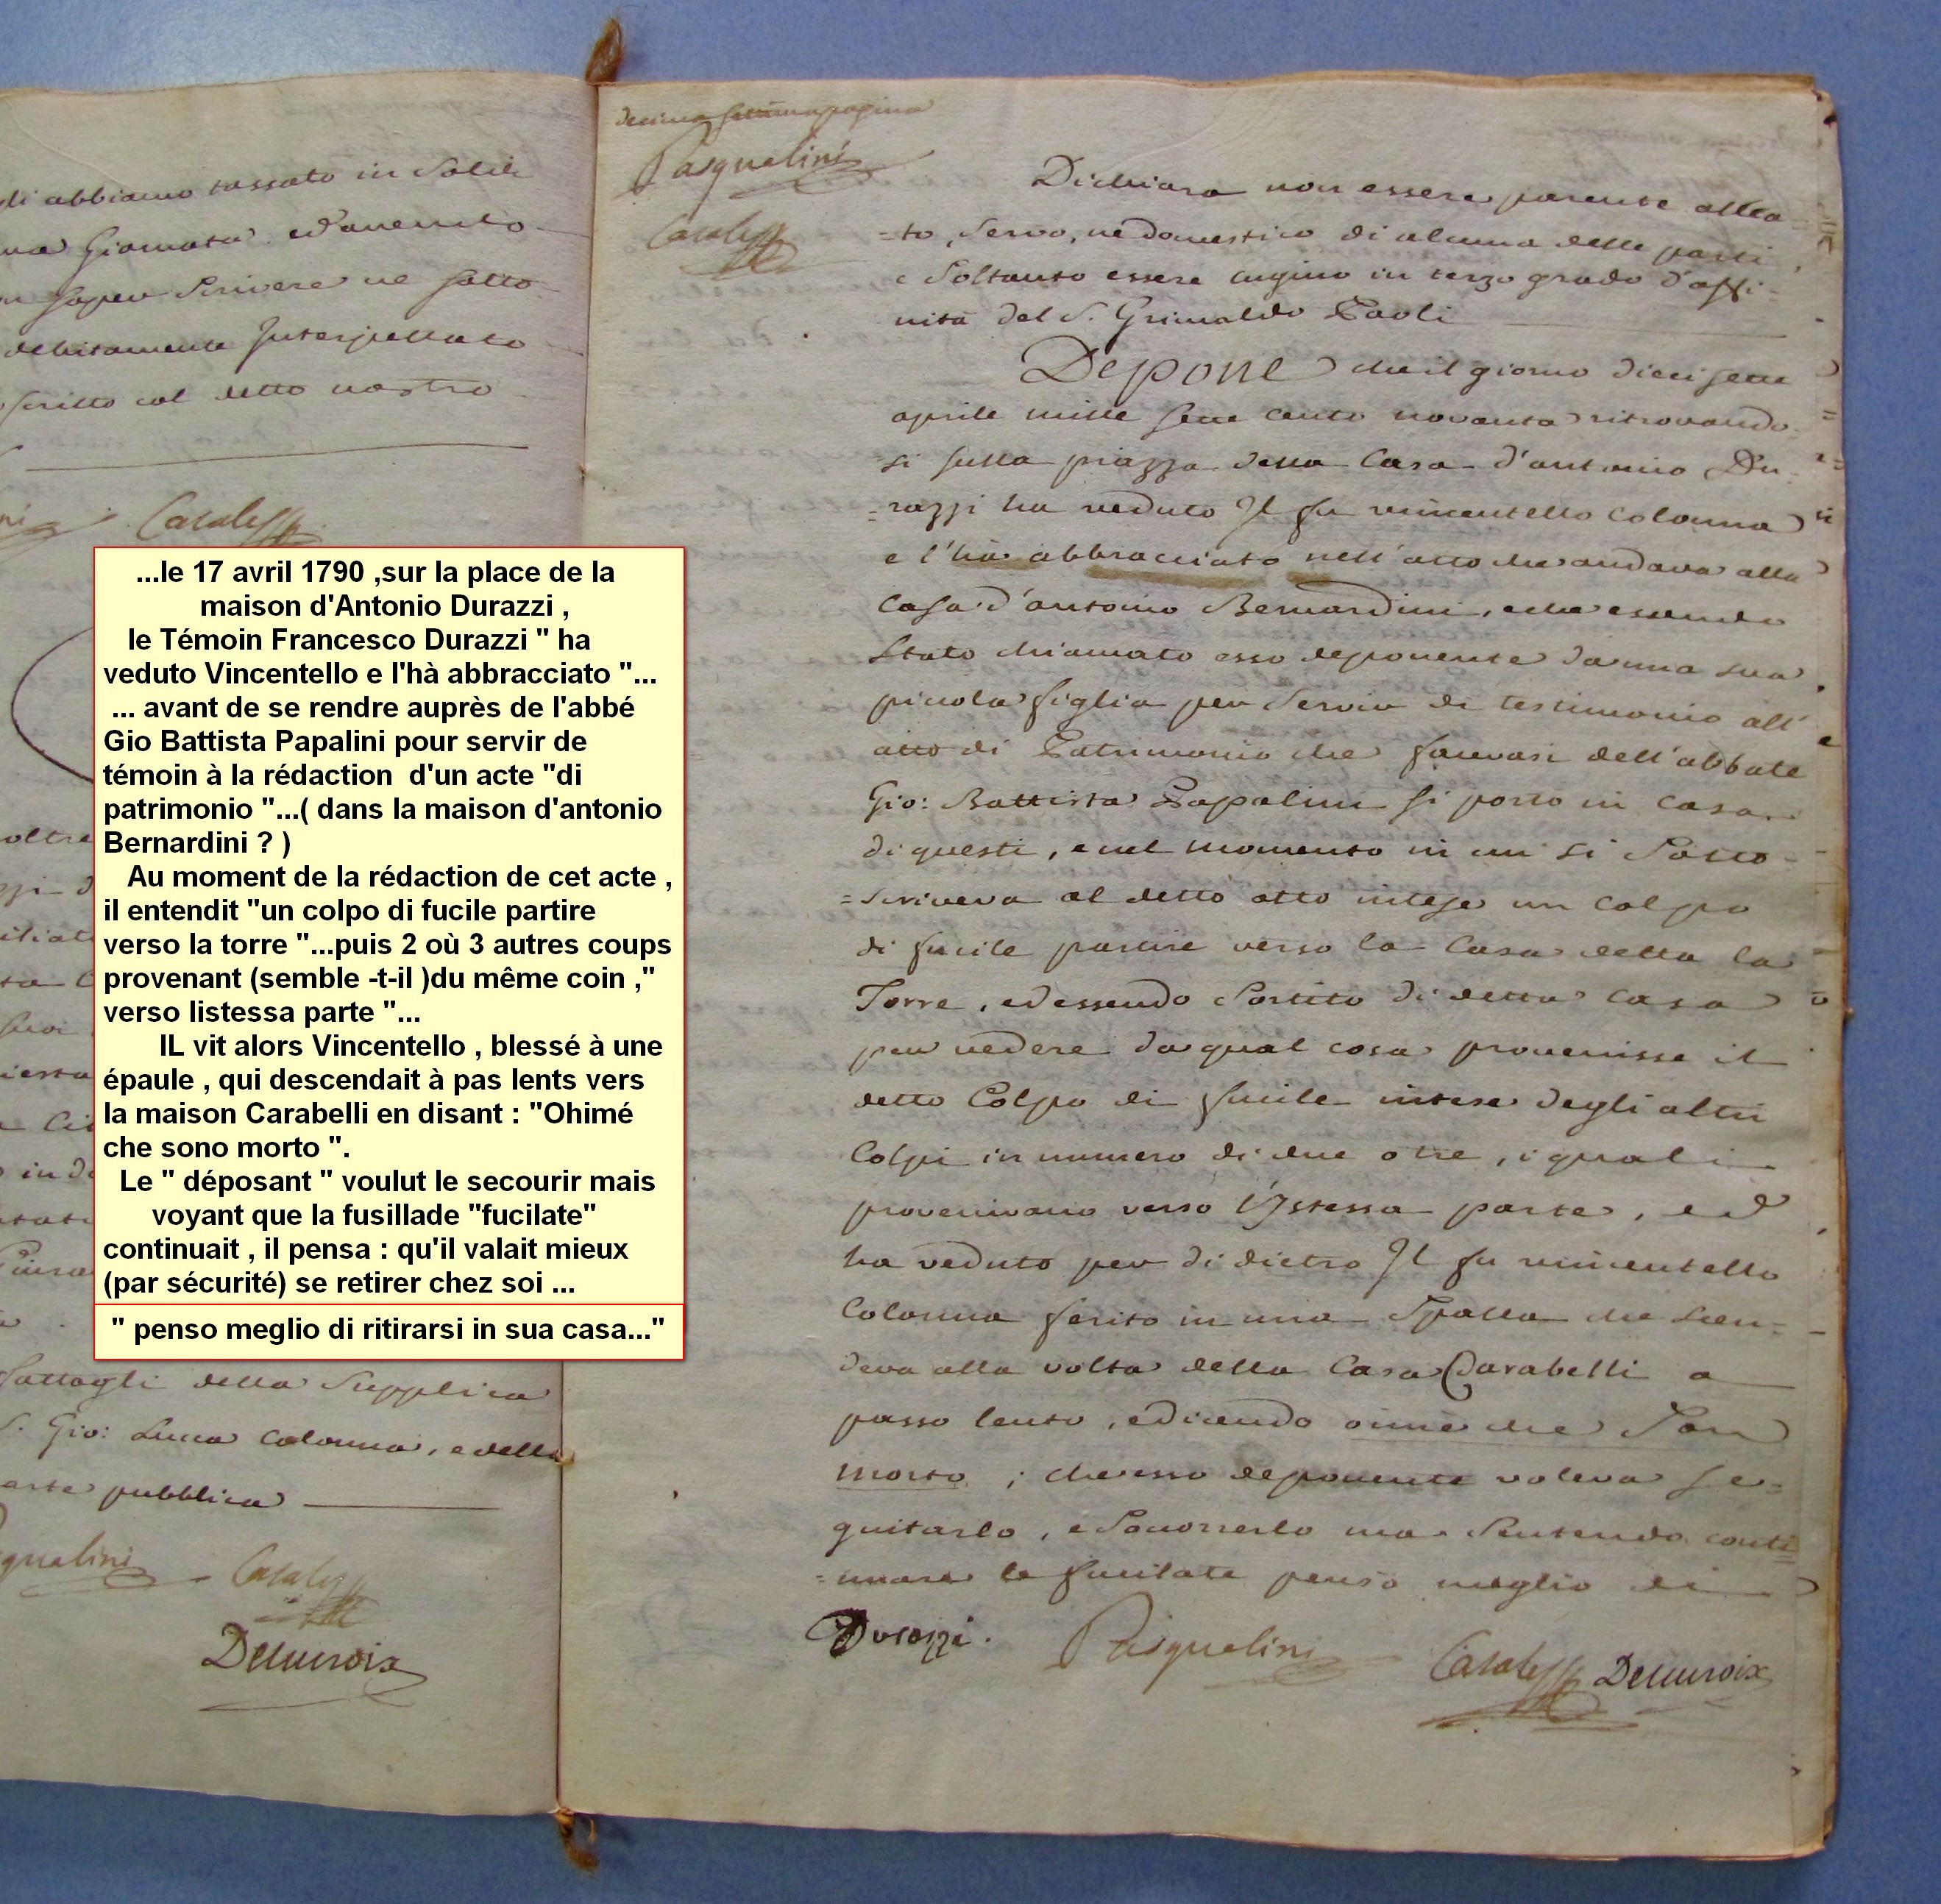 li abbiamo tassato in Soldi
Giornata ed avendo
saper Scrivere ne sotto
debitamente Interpellato
scritto col detto nostro
Casalessa
...le 17 avril 1790 ,sur la place de la
maison d'Antonio Durazzi ,
le Témoin Francesco Durazzi " ha
veduto Vincentello e l'hà abbracciato "...
... avant de se rendre auprès de l'abbé
Gio Battista Papalini pour servir de
témoin à la rédaction d'un acte "di
patrimonio "...( dans la maison d'antonio
Bernardini ? )
Au moment de la rédaction de cet acte ,
il entendit "un colpo di fucile partire
verso la torre "...puis 2 où 3 autres coups
provenant (semble -t-il )du même coin ,"
verso listessa parte "...
IL vit alors Vincentello , blessé à une
épaule , qui descendait à pas lents vers
la maison Carabelli en disant : "Ohimé
che sono morto ".
Le " déposant " voulut le secourir mais
voyant que la fusillade "fucilate"
continuait , il pensa : qu'il valait mieux
(par sécurité) se retirer chez soi ...
" penso meglio di ritirarsi in sua casa..."
oltre
della Supplica
S. Gio: Luca Colonna, e della
parte pubblica
Pasqualini Casalessa
Delacroix
decima settima pagina
Pasqualini
Casalessa
Dichiara non essere parente allea
=to, Servo, ne domestico di alcuna delle parti,
e Soltanto essere cugino in terzo grado d'affi=
nità del S. Grimaldo Paoli
Depone che il giorno dieci sette
aprile mille sette cento novanta ritrovando
si sulla piazza della Casa d'antonio Du=
=razzi ha veduto Il fu vincentello Colonna
e l'hà abbracciato nell'atto che andava alla
Casa d'antonio Bernardini, e che essendo
Stato chiamato esso deponente da una sua
piccola figlia per Servir di testimonio all'
atto di Patrimonio che facevasi dell'abbate
Gio: Battista Papalini si portò in Casa
di questi, e nel momento in cui si Sotto=
=scriveva al detto atto intese un Colpo
di fucile partire verso la Casa della la
Torre, ed essendo Sortito di detta Casa
per vedere da qual cosa provenisse il
detto Colpo di fucile intese degli altri
Colpi in numero di due o tre, i quali
provenivano verso l'Istessa parte, ed
ha veduto per di dietro Il fu vincentello
Colonna ferito in una Spalla che Scen=
deva alla volta della Casa Carabelli a
passo lento, e dicendo oimè che Son
morto; che esso deponente voleva se=
guitarlo, e Soccorrerlo ma Sentendo conti
=nuare le fucilate pensò meglio di
Durazzi. Pasqualini Casalessa Delacroix